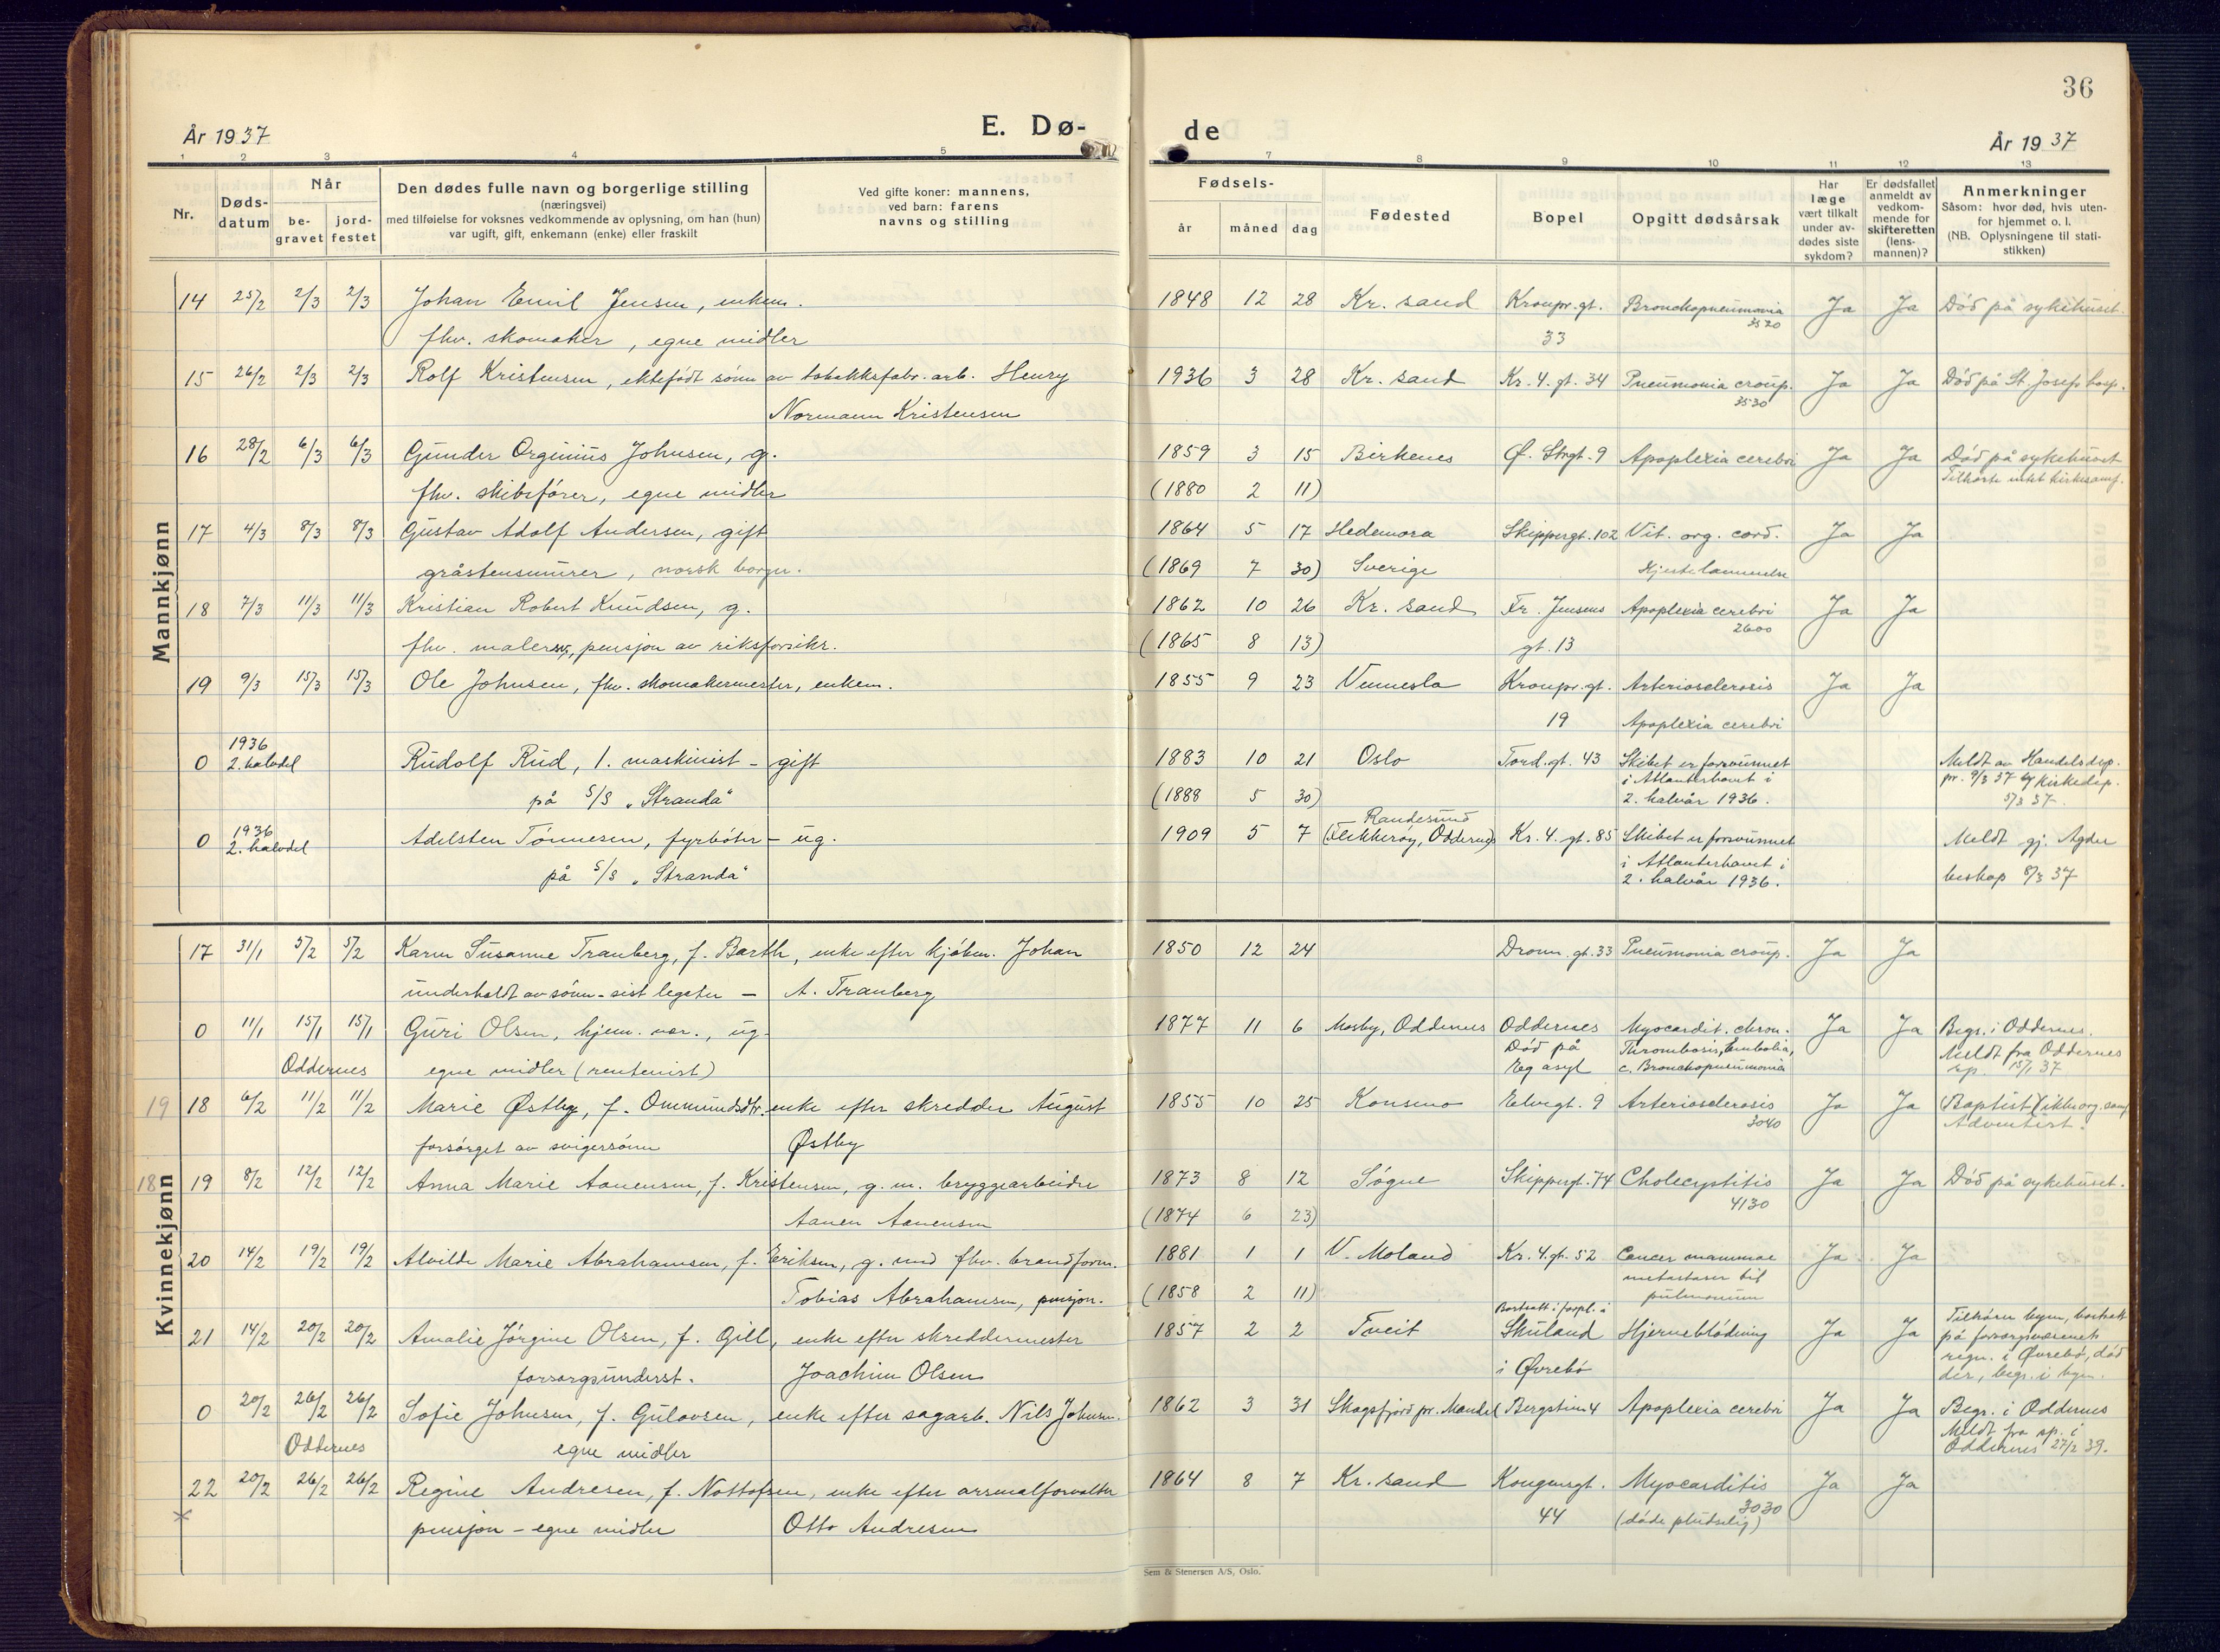 36
År 1937
E. Dø-
de
År 1937
1 2 3 4 5 7 8 9 10 11 12 13
Nr.
Døds-
datum
Når
be-
gravet
jord-
festet
Den dødes fulle navn og borgerlige stilling
(næringsvei)
med tilføielse for voksnes vedkommende av oplysning, om han (hun)
var ugift, gift, enkemann (enke) eller fraskilt
Ved gifte koner: mannens,
ved barn: farens
navns og stilling
Fødsels-
år måned dag
Fødested
Bopel
Opgitt dødsårsak
Har
læge
vært tilkalt
under av-
dødes siste
sykdom?
Er dødsfallet
anmeldt av
vedkom-
mende for
skifteretten
(lens-
mannen)?
Anmerkninger
Såsom: hvor død, hvis uten-
for hjemmet o. l.
(NB. Oplysningene til stati-
stikken)
Mannkjønn
14 25/2 2/3 2/3 Johan Emil Jensen, enkem. 1848 12 28 Kr. sand Kronpr. gt. Bronchopneumonia Ja Ja Død på sykehuset.
fhv. skomaker, egne midler 33 3520
15 26/2 2/3 2/3 Rolf Kristensen, ektefødt sønn av tobakksfabr. arb. Henry 1936 3 28 Kr. sand Kr. 4. gt. 34 Pneumonia croup. Ja Ja Død på St. Josefs hosp.
Normann Kristensen 3530
16 28/2 6/3 6/3 Gunder Orginius Johnsen, g. 1859 3 15 Birkenes Ø. Strgt. 9 Apoplexia cerebri Ja Ja Død på sykehuset
fhv. skibsfører, egne midler (1880 2 11) Tilhørte intet kirkesamf.
17 4/3 8/3 8/3 Gustav Adolf Andersen, gift 1864 5 17 Hedemora Skippergt. 102 Vit. org. cord. Ja Ja
gråstensmurer, norsk borger. (1869 7 30) Sverige Hjertelammelse
18 7/3 11/3 11/3 Kristian Robert Knudsen, g. 1862 10 26 Kr. sand Fr. Jensens Apoplexia cerebri Ja Ja
fhv. maler, pensjon av riksforsikr. (1865 8 13) gt. 13 2600
19 9/3 15/3 15/3 Ole Johnsen, fhv. skomakermester, enkem. 1855 9 23 Vennesla Kronpr. gt. Arteriosclerosis Ja Ja
19 Apoplexia cerebri
0 1936 2. halvdel Rudolf Rud, 1. maskinist - gift 1883 10 21 Oslo Tord. gt. 43 Skibet er forsvunnet Meldt av Handelsdep.
på S/S „Stranda" (1888 5 30) i Atlanterhavet i pr. 9/3 37 og Kirkedep.
2. halvår 1936. 5/3 37.
0 1936 2. halvdel Adelsten Tønnesen, fyrbøter - ug. 1909 5 7 Randesund (Flekkerøy, Oddernes) Kr. 4. gt. 85 Skibet er forsvunnet Meldt gj. Agder
på S/S „Stranda" i Atlanterhavet i beskop 8/3 37
2. halvår 1936.
Kvinnekjønn
17 31/1 5/2 5/2 Karen Susanne Tranberg, f. Barth, enke efter kjøbm. Johan 1850 12 24 Dronn. gt. 33 Pneumonia croup. Ja Ja
underholdt av sønn - sist legater - A. Tranberg
0 11/1 15/1 15/1 Guri Olsen, hjem. vær., ug. 1877 11 6 Mosby, Oddernes Oddernes Myocardit. chron. Ja Ja Begr. i Oddernes.
Oddernes egne midler (rentenist) Død på Thrombosis, Embolia, Meldt fra Oddernes
Eg asyl c. Bronchopneumonia sp. 15/1 37
19 18 6/2 11/2 11/2 Marie Østby, f. Ommundsdtr. enke efter skredder August 1855 10 25 Konsmo Elvegt. 9 Arteriosclerosis Ja Ja (Baptist) (ikke org. samf.
forsørget av svigersønn Østby 3040 Adventist.
18 19 8/2 12/2 12/2 Anna Marie Aanensen, f. Kristensen, g. m. bryggearbeider 1873 8 12 Søgne Skippergt. 74 Cholecystitis Ja Ja Død på sykehuset.
Aanen Aanensen (1874 6 23) 4130
20 14/2 19/2 19/2 Alvilde Marie Abrahamsen, f. Eriksen, g. med fhv. brandform. 1881 1 1 V. Moland Kr. 4. gt. 52 Cancer mammae Ja Ja
Tobias Abrahamsen, pensjon. (1858 2 11) metastaser til
pulmonum
21 14/2 20/2 20/2 Amalie Jørgine Olsen, f. Gill, enke efter skreddermester 1857 2 2 Tveit Bortsatt i forpl. i Skuland Hjerneblødning Ja Ja Tilhører byen, bortsatt
forsorgsunderst. Joachim Olsen i Øvrebø på forsorgsvæsenets
regn. i Øvrebø, død
der, begr. i byen.
0 20/2 26/2 26/2 Sofie Johnsen, f. Gulovsen, enke efter sagarb. Nils Johnsen. 1862 3 31 Skogsfjord pr. Mandal Bergstien 4 Apoplexia cerebri Ja Ja Begr. i Oddernes
Oddernes egne midler Meldt fra sp. i
Oddernes 27/2 39.
22 20/2 26/2 26/2 Regine Andresen, f. Nottofsen, enke efter arsenalforvalter 1864 8 7 Kr. sand Kongensgt. Myocarditis Ja Ja
pensjon - egne midler Otto Andresen 44 3030 (døde pludselig)
Sem & Stenersen A/S, Oslo.